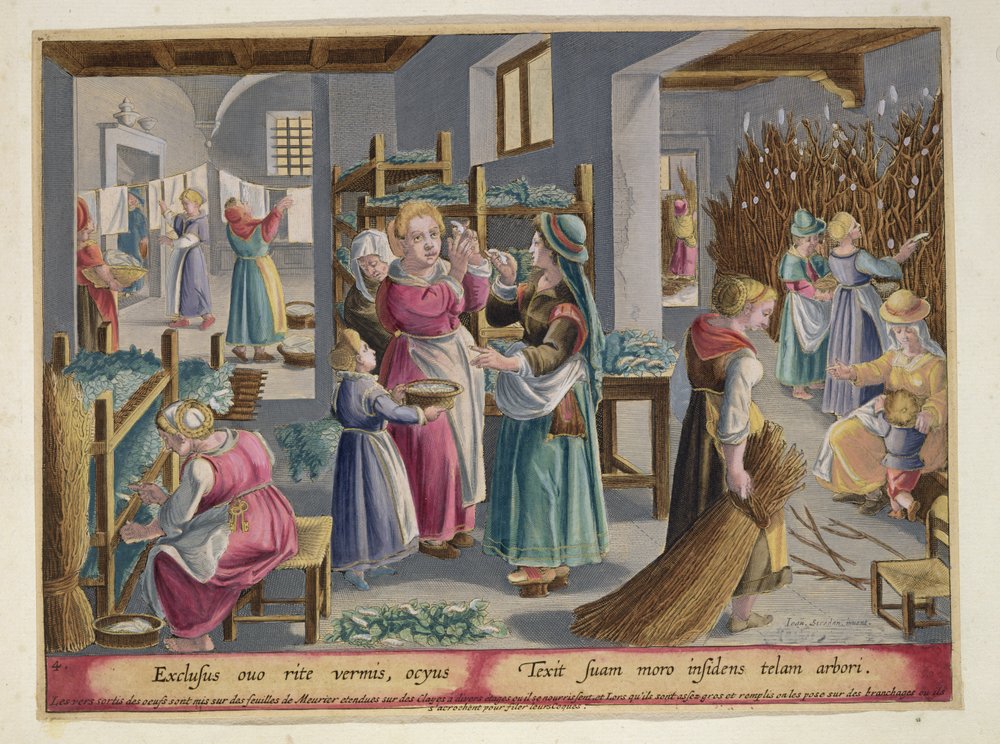 Ioan. Stradan. invent.
4.
Exclusus ouo rite vermis, ocyus Texit suam moro insidens telam arbori.
Les vers sortis des oeufs sont mis sur des feuilles de Meurier etendues sur des Clayes a divers etages ou il se nourrissent, et Lors qu'ils sont assez gros et remplis on les pose sur des branchages ou ils
s'acrochent pour filer leurs Coques.